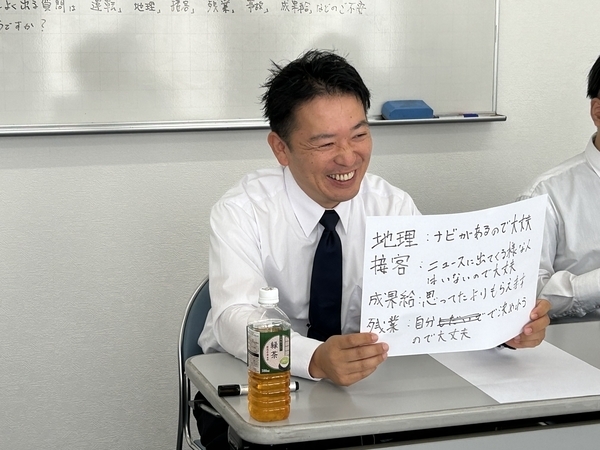 よく出る質問は 運転」 地理」 接客」 残業」 事故」 成果給」はどのご不安
うですか？
地理：ナビがあるので大丈夫
接客：ニュースに出てくる様な人
はいないので大丈夫
成果給：思ってたよりもらえます
残業：自分で決めれる
ので大丈夫
緑茶